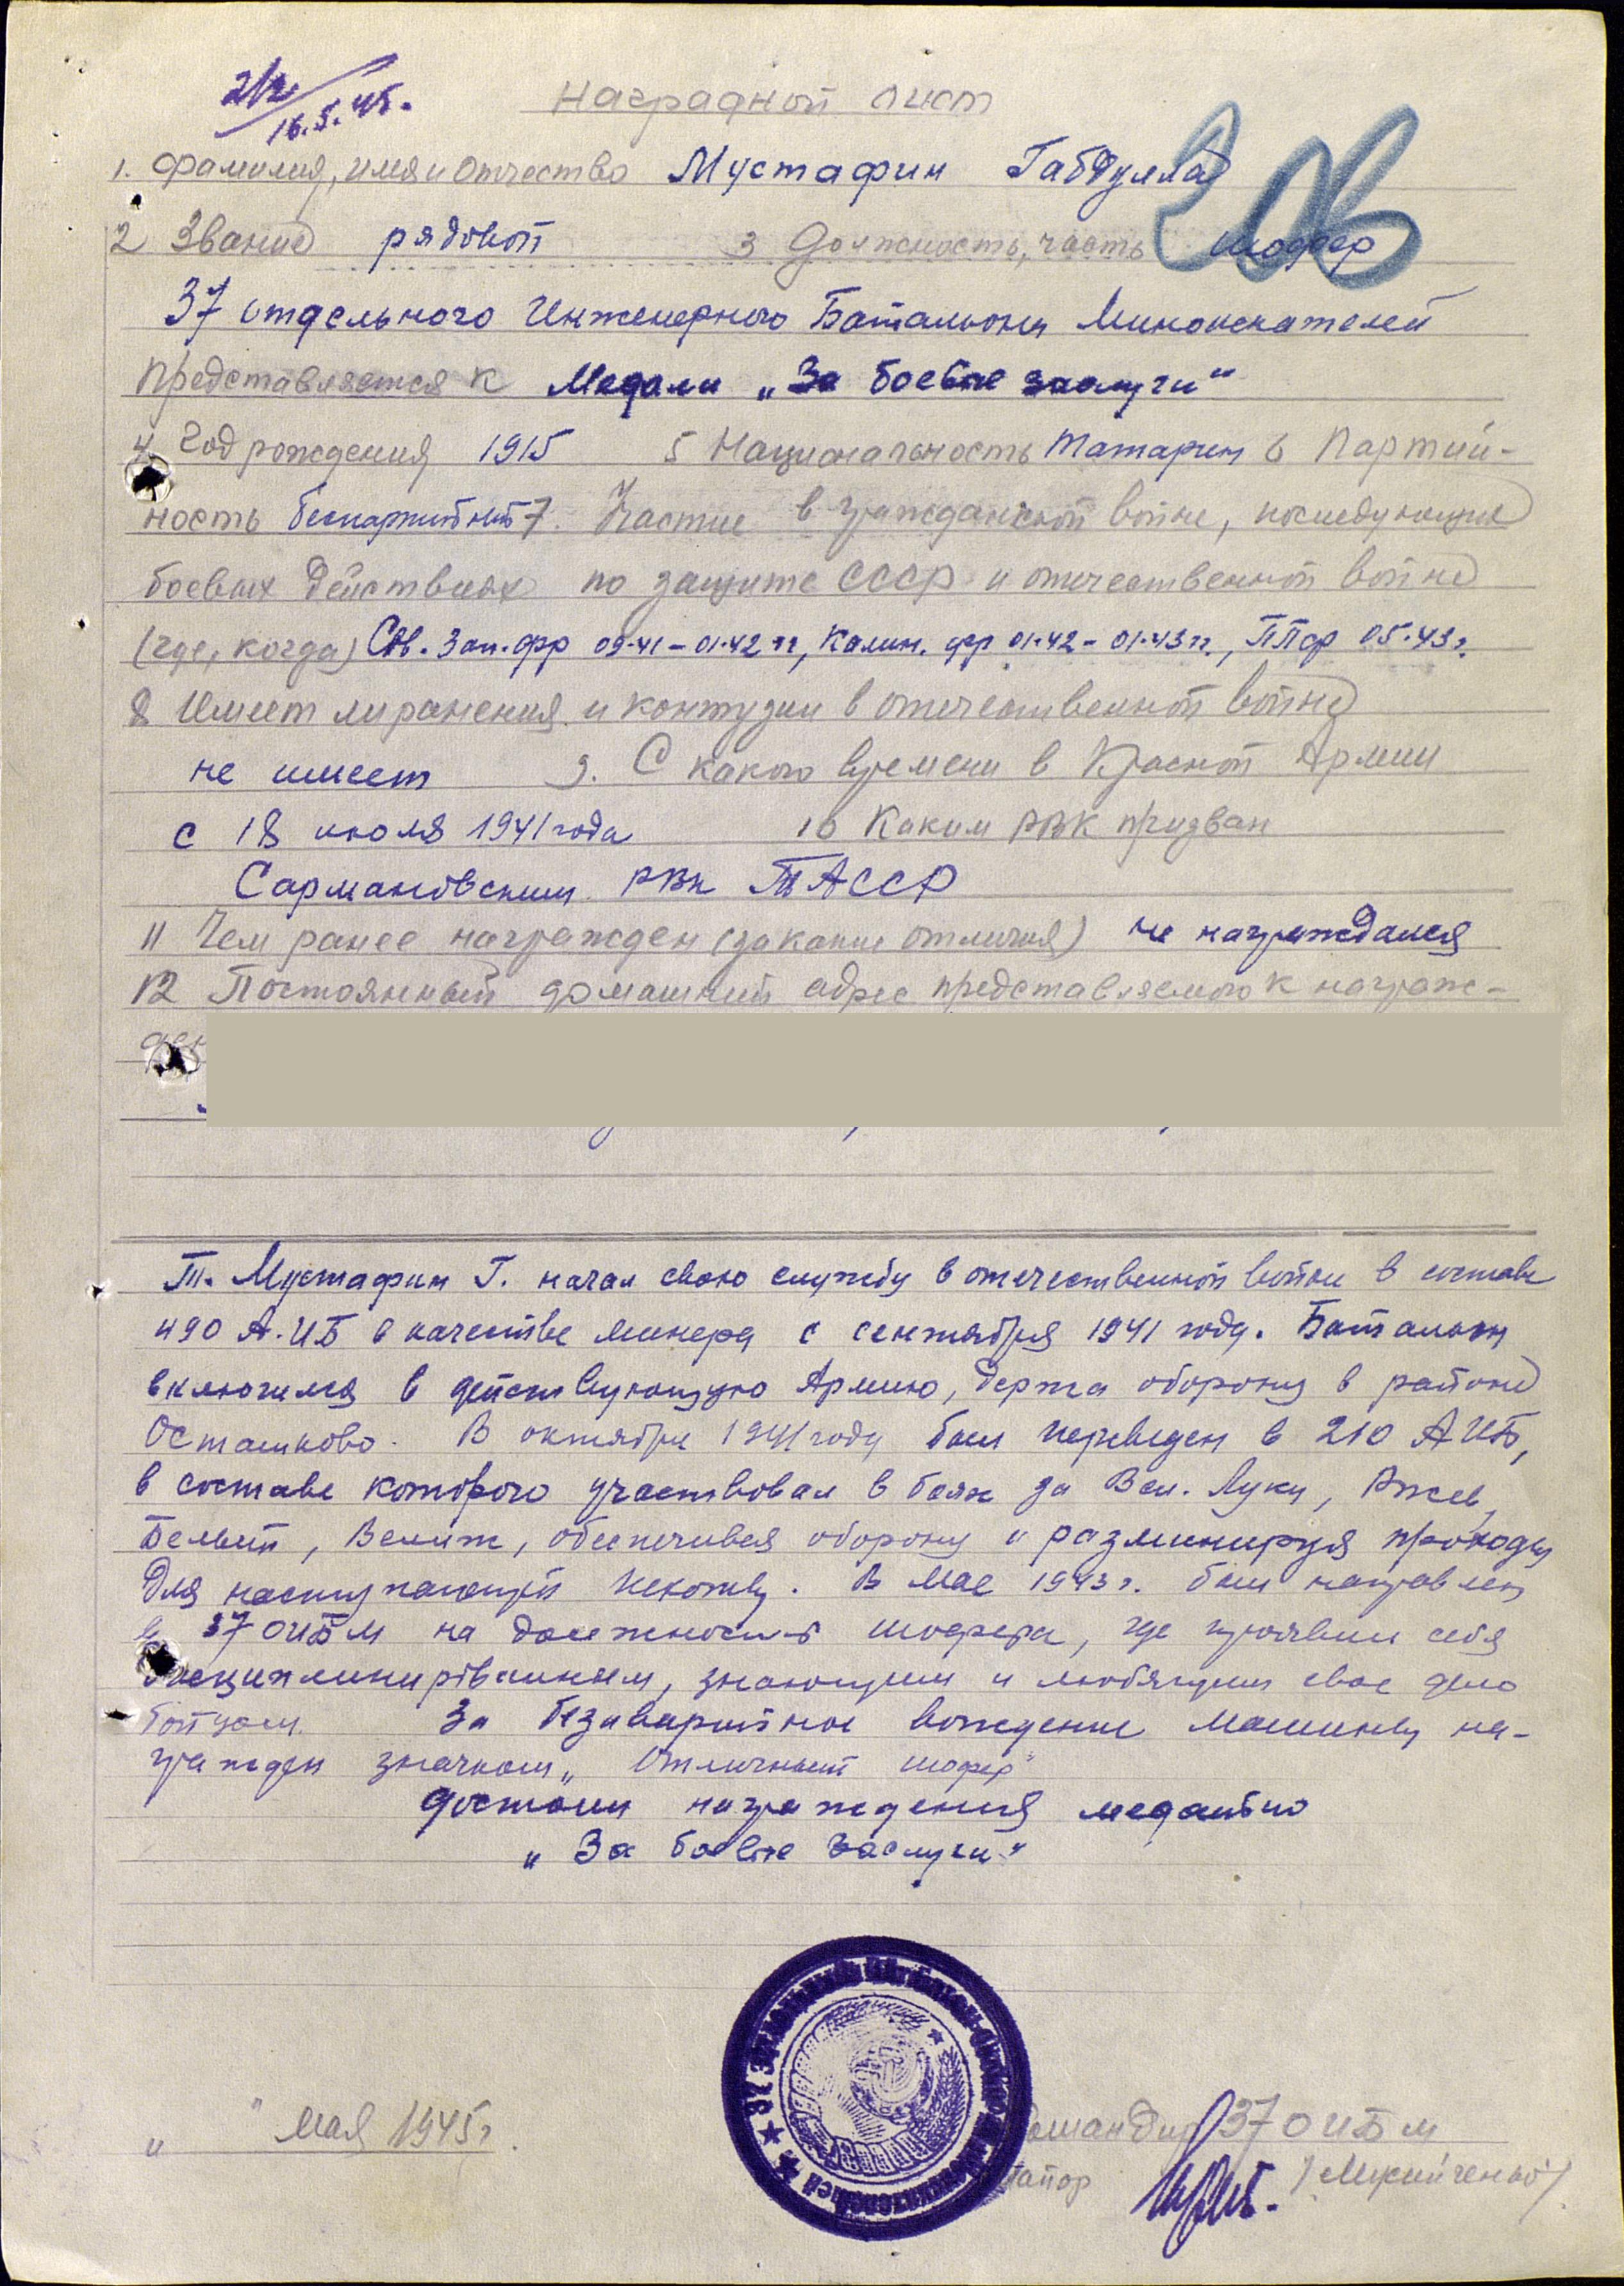 212
16.5.45.
Наградной лист
1. Фамилия, имя и отчество Мустафин Габдулла
2 Звание рядовой 3 Должность, часть шофер
37 отдельного Инженерного Батальона Миноискателей
представляется к Медали „За боевые заслуги"
4 Год рождения 1915 5 Национальность татарин 6 Партий-
ность беспартийный 7. Участие в гражданской войне, последующих
боевых действиях по защите СССР и отечественной войне
(где, когда) Сев. Зап. фр 09.41-01.42 гг, Калин. фр 01.42-01.43 гг., ППф 05.43 г.
8 Имеет ли ранения и контузии в отечественной войне
не имеет 9. С какого времени в Красной Армии
с 18 июля 1941 года 10 Каким РВК призван
Сармановским РВК ТАССР
11 Чем ранее награжден (за какие отличия) не награждался
12 Постоянный домашний адрес представляемого к награж-
Т. Мустафин Г. начал свою службу в отечественной войне в составе
490 А.ИБ в качестве минера с сентября 1941 году. Батальон
включился в действующую Армию, держа оборону в районе
Осташково. В октябре 1941 году был переведен в 210 АИБ,
в составе которого участвовал в боях за Вел. Луки, Ржев,
Белый, Велиж, обеспечивая оборону и разминируя проходы
для наступающей пехоты. В мае 1943 г. был направлен
в 37 ОИБМ на должность шофера, где проявил себя
дисциплинированным, знающим и любящим свое дело
бойцом. За безаварийное вождение машины на-
гражден значком „Отличный шофер"
достоин награждения медалью
„За боевые заслуги"
„ " мая 1945 г.
Командир 37 ОИБМ
майор